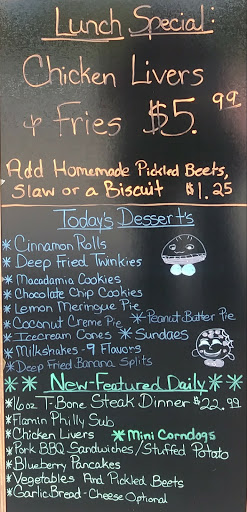 Lunch Special:
Chicken Livers
& Fries $5.99
Add Homemade Pickled Beets,
Slaw or a Biscuit $1.25
Today's Desserts
* Cinnamon Rolls
* Deep Fried Twinkies
* Macadamia Cookies
* Chocolate Chip Cookies
* Lemon Meringue Pie
* Coconut Creme Pie * Peanut Butter Pie
* Icecream Cones * Sundaes
* Milkshakes - 9 Flavors
* Deep Fried Banana Splits
** New-Featured Daily **
*16oz T-Bone Steak Dinner $22.99
*Flamin Philly Sub
*Chicken Livers *Mini Corndogs
*Pork BBQ Sandwiches/Stuffed Potato
*Blueberry Pancakes
*Vegetables And Pickled Beets
*Garlic Bread - Cheese Optional